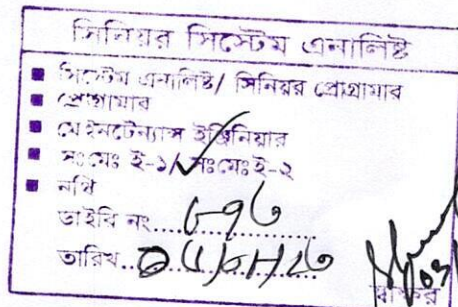 সিনিয়র সিস্টেম এনালিষ্ট
■ সিস্টেম এনালিষ্ট/ সিনিয়র প্রোগ্রামার
■ প্রোগ্রামার
■ মেইনটেন্যান্স ইঞ্জিনিয়ার
■ সঃমেঃ ই-১/সঃমেঃই-২
■ নথি
ডাইরি নং.....
তারিখ..